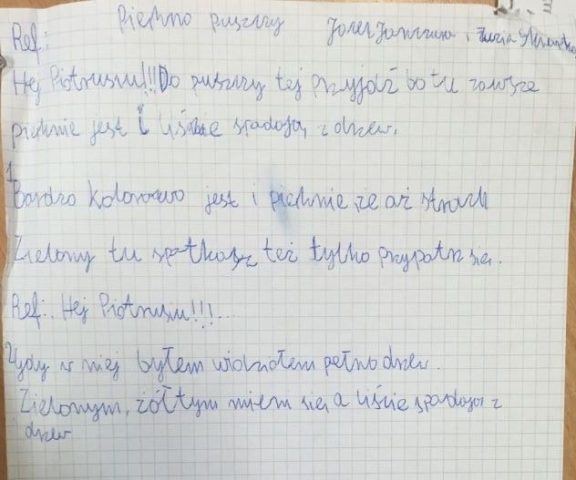 Piękno puszczy
Ref.:
Hej Piotrusiu!!! Do puszczy tej przyjdź bo tu zawsze
pięknie jest i liście spadają z drzew.
1
Bardzo kolorowo jest i pięknie, że aż strach
Zielony tu spotkasz też tylko przypatrz się.
Ref.: Hej Piotrusiu!!!...
2 gdy w niej byłem widziałem pełno drzew.
Zielonym, żółtym się a liście spadają z
drzew